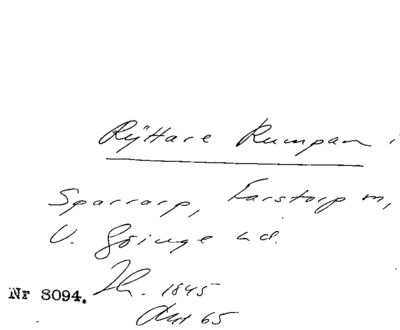 Ryttare Rumpan i
Sparrarp, Farstorp sn,
V. Göinge hd.
Nr 3094. Th. 1845
Aut 65